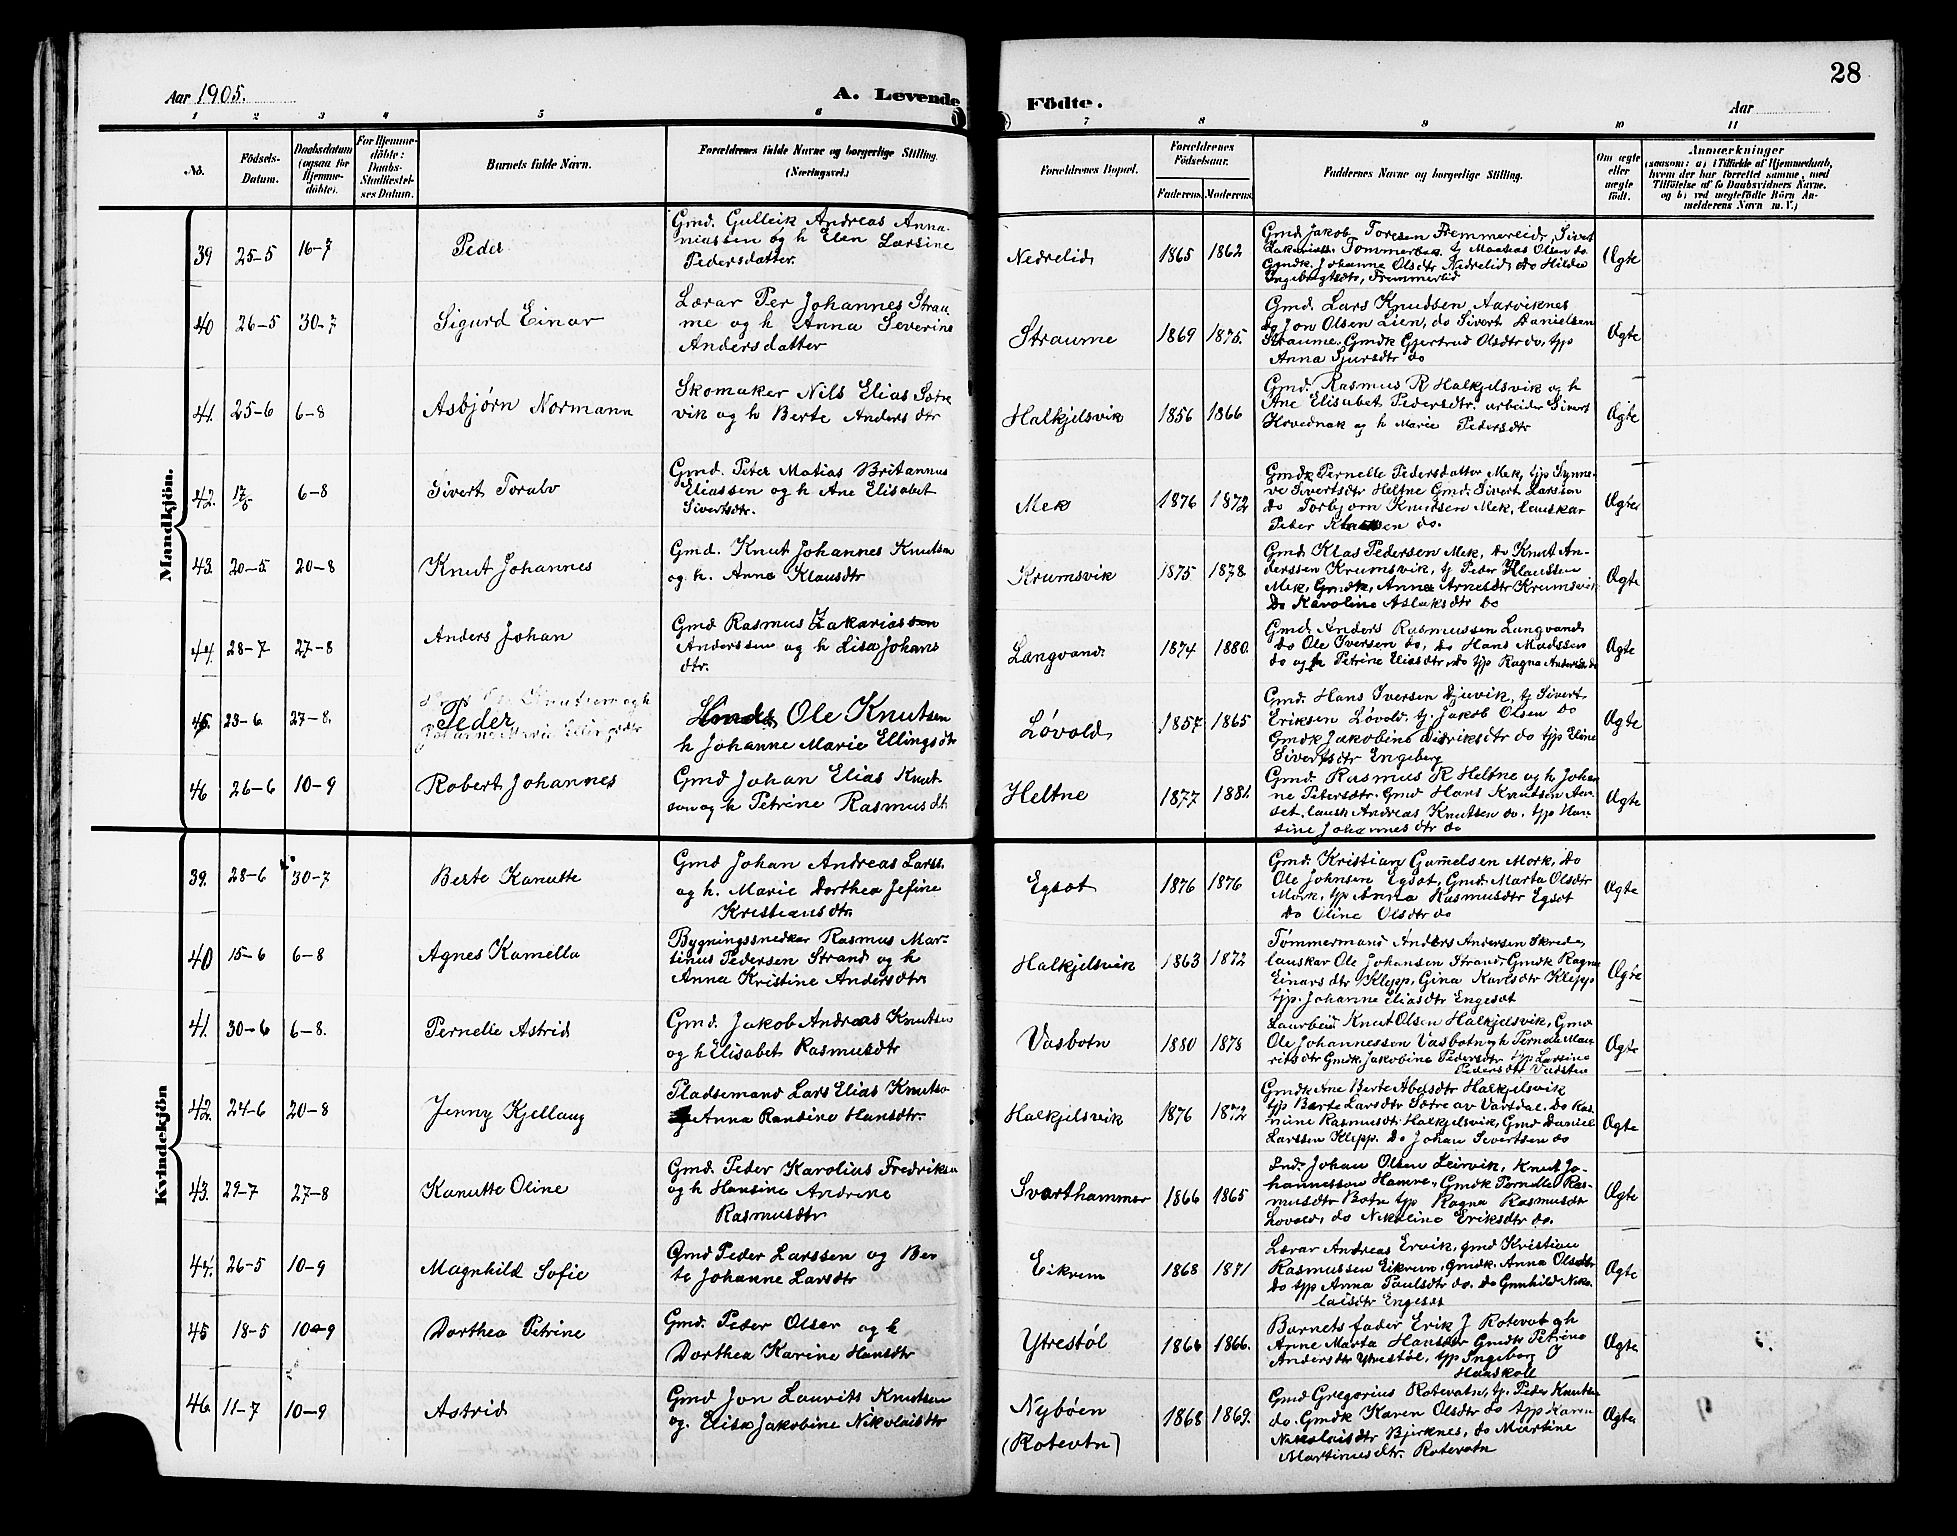 28
Aar 1905.
A. Levende Födte.
Aar
1 2 3 4 5 6 7 8 9 10 11
No.
Födsels-
Datum.
Daabsdatum
(ogsaa for
Hjemme-
döbte).
For Hjemme-
döbte:
Daabs-
Stadfæstel-
ses Datum.
Barnets fulde Navn.
Forældrenes fulde Navne og borgerlige Stilling.
(Næringsvei.)
Forældrenes Bopæl.
Forældrenes
Födselsaar.
Faderens. Moderens.
Faddernes Navne og borgerlige Stilling.
Om ægte
eller
uægte
födt.
Anmærkninger
(saasom: a) i Tilfælde af Hjemmedaab,
hvem der har forrettet samme, med
Tilföielse af to Daabsvidners Navne,
og b) ved uægtefödte Börn An-
melderens Navn m. V.)
Mandkjön.
39 25-5 16-7
Peder
Gmd. Gulleik Andreas Anna-
niassen og h Elen Larsine
Pedersdatter.
Nedrelid 1865 1862
Gmd. Jakob Toresen Fremmerlid, Sivert
Zakariass. Tommerbak. tj Mathias Olsen do.
Gmdk. Johanne Olsdtr Nedrelid, do Hilda
Ingebrigtsdtr, Fremmerlid
Ægte
40 26-5 30-7
Sigurd Einar
Lærar Per Johannes Strau-
me og h Anna Severine
Andersdatter
Straume 1869 1875.
Gmd. Lars Knudsen Aarviknes
do Jon Olsen Lien, do Sivert Danielsen
Straume. Gmdk Gjertrud Olsdtr do, tjp
Anna Sjursdtr do
Ægte
41. 25-6 6-8
Asbjørn Normann
Skomaker Nils Elias Sætre
vik og h Berte Andersdtr
Halkjelsvik 1856 1866
Gmd. Rasmus R Halkjelsvik og h
Ane Elisabet Pedersdtr. arbeider Sivert
Hovednak og h Marie Pedersdtr
Ægte
42. 17/6 6-8
Sivert Toralv
Gmd. Peter Matias Britannus
Eliassen og h Ane Elisabet
Sivertsdtr.
Mek 1876 1872
Gmdk Pernelle Pedersdatter Mek, tjp Synne-
ve Sivertsdtr Heltne Gmd. Sivert Larssen
do Torbjørn Knutsen Mek, lauskar
Peter Klassen do.
Ægte
43. 20-5 20-8
Knut Johannes
Gmd. Knut Johannes Knutsen
og h. Anne Klausdtr
Krumsvik 1875 1878
Gmd. Klas Pedersen Mek, do Knut An-
derssen Krumsvik, tj Peder Klaussen
Mek, Gmdk, Anna Arnesdtr Krumsvik
do Karoline Aslaksdtr do
Ægte
44. 28-7 27-8
Anders Johan
Gmd Rasmus Zakarias
Anderssen og h Lisa Johans
dtr.
Langvand. 1874 1880.
Gmd. Anders Rasmussen Langvand
do Ole Iversen do, do Hans Madssen
do og h Petrine Eliasdtr do tjp Ragna Andersdtr do
Ægte
45. 23-6 27-8.
Peder
Ole Knutsen
h Johanne Marie Ellingsdtr
Løvold 1857 1865
Gmd. Hans Iversen Djuvik, tj Sivert
Eriksen Løvold. tj. Jakob Olsen do
Gmdk Jakobine Didriksdtr do tjp Eline
Sivertsdtr Engeberg
Ægte
46 26-6 10-9
Robert Johannes
Gmd Johan Elias Knut-
sen og h Petrine Rasmusdtr
Heltne 1877 1881.
Gmd. Rasmus R Heltne og h Johan
ne Petersdtr. Gmd Hans Knutsen Aar-
set, lausk Andreas Knutsen do. tjp Han-
sine Johannesdtr do
Ægte
Kvindekjön
39. 28-6 30-7
Berte Kanutte
Gmd Johan Andreas Larss.
og h. Marie Dorthea Jefine
Kristiansdtr.
Egset 1876 1876
Gmd. Kristian Gamelsen Mork, do
Ole Johnsen Egset, Gmd. Marta Olsdtr
Mork, tjp Anna Rasmusdtr Egset
do Oline Olsdtr do
Ægte
40 15-6 6-8
Agnes Kamella
Bygningssnedker Rasmus Mar-
tinus Pedersen Strand og h
Anna Kristine Andersdtr.
Halkjelsvik 1863 1872
Tømmermand Anders Andersen Skrede,
lauskar Ole Johansen Strand, Gmdk Ragna
Einarsdtr Klepp, Gina Karlsdtr Klepp
tjp. Johanne Eliasdtr Engeset
Ægte
41. 30-6 6-8.
Pernelle Astrid
Gmd. Jakob Andreas Knutsen
og h Elisabet Rasmusdtr
Vasbotn 1880 1878
Knut Olsen Halkjelsvik, Gmd
Ole Johannessen Vasbotn og h Pernele Mau-
ritsdtr Gmdk. Jakobine Pedersdtr tjp Larsine
Pedersdtr Vadsten
Ægte
42. 24-6 20-8
Jenny Kjellaug
Pladsemand Lars Elias Knutsen
og Anna Ransine Hansdtr.
Halkjelsvik 1876 1872
Gmdk Ane Berte Abelsdtr Halkjelsvik
tjp Berte Larsdtr Sætre av Vartdal, do Ras-
mine Rasmusdtr Halkjelsvik, Gmd Daniel
Larssen Klepp. do Johan Sivertsen do
Ægte
43. 29-7 27-8
Kanutte Oline
Gmd. Peder Karolius Fredriksen
og h Hansine Andrine
Rasmusdtr
Svarthammer 1866 1865
Johan Olsen Leirvik, Knut Jo-
hannessen Hamre, Gmdk Pernelle Ras-
musdtr Botn tjp Ragna Rasmusdtr
Løvold, do Nikoline Eriksdtr do.
Ægte
44. 26-5 10-9
Magnhild Sofie
Gmd Peder Larssen og Ber
te Johanne Larsdtr
Eikrem 1868 1871
Lærar Andreas Ervik, gmd Kristian
Rasmussen Eikrem, Gmdk. Anna Olsdtr
do tjp Anna Paulsdtr do. do Gunhild Niko-
laisdtr Engeset
Ægte
45 18-5 10-9
Dorthea Petrine
Gmd. Peder Olsen og h
Dorthea Karine Hansdtr
Ytrestøl 1866 1866.
Barnets fader Erik J Rotevat og h
Anne Marta Hansdtr Gmdk Petrine
Andersdtr Ytrestøl, tjp Ingeborg J
Hauskole
Ægte
46 11-7 10-9
Astrid
Gmd Jon Laurits Knutsen
og. Elisa Jakobine Nikolaisdtr
Nybøen
(Rotevtn) 1868 1869.
Gmd Gregorius Rotevatn, tj. Peder Knutsen
do. Gmdk Karen Olsdtr do tjp Karen
Nikolaisdtr Bjerknes, do Martine
Martinusdtr. Rotevatn
Ægte